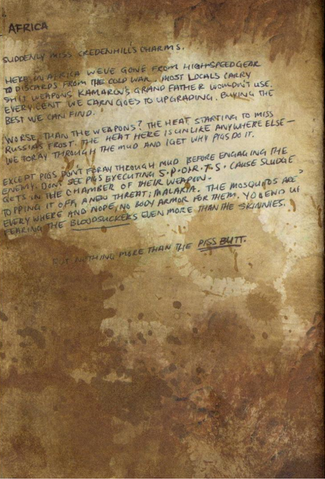 AFRICA
SUDDENLY MISS CREDENHILL'S CHARMS.
HERE IN AFRICA WE'VE GONE FROM HIGH-SPEED GEAR
TO DISCARDS FROM THE COLD WAR. MOST LOCALS CARRY
SHIT WEAPONS KAMAROV'S GRAND FATHER WOULDN'T USE.
EVERY CENT WE EARN GOES TO UPGRADING, BUYING THE
BEST WE CAN FIND.
WORSE THAN THE WEAPONS? THE HEAT STARTING TO MISS
RUSSIAN FROST. THE HEAT HERE IS UNLIKE ANYWHERE ELSE—
WE FORAY THROUGH THE MUD AND I GET WHY PIGS DO IT.
EXCEPT PIGS DON'T FORAY THROUGH MUD BEFORE ENGAGING THE
ENEMY. DON'T SEE PIGS EXECUTING S.P.O.R.T.S. CAUSE SLUDGE
GETS IN THE CHAMBER OF THEIR WEAPON.
TOPPING IT OFF, A NEW THREAT: MALARIA. THE MOSQUITOS ARE
EVERYWHERE AND NOPE, NO BODY ARMOR FOR THEM. YOU END UP
FEARING THE BLOODSUCKERS EVEN MORE THAN THE SKINNIES.
BUT NOTHING MORE THAN THE PIGS BUTT.